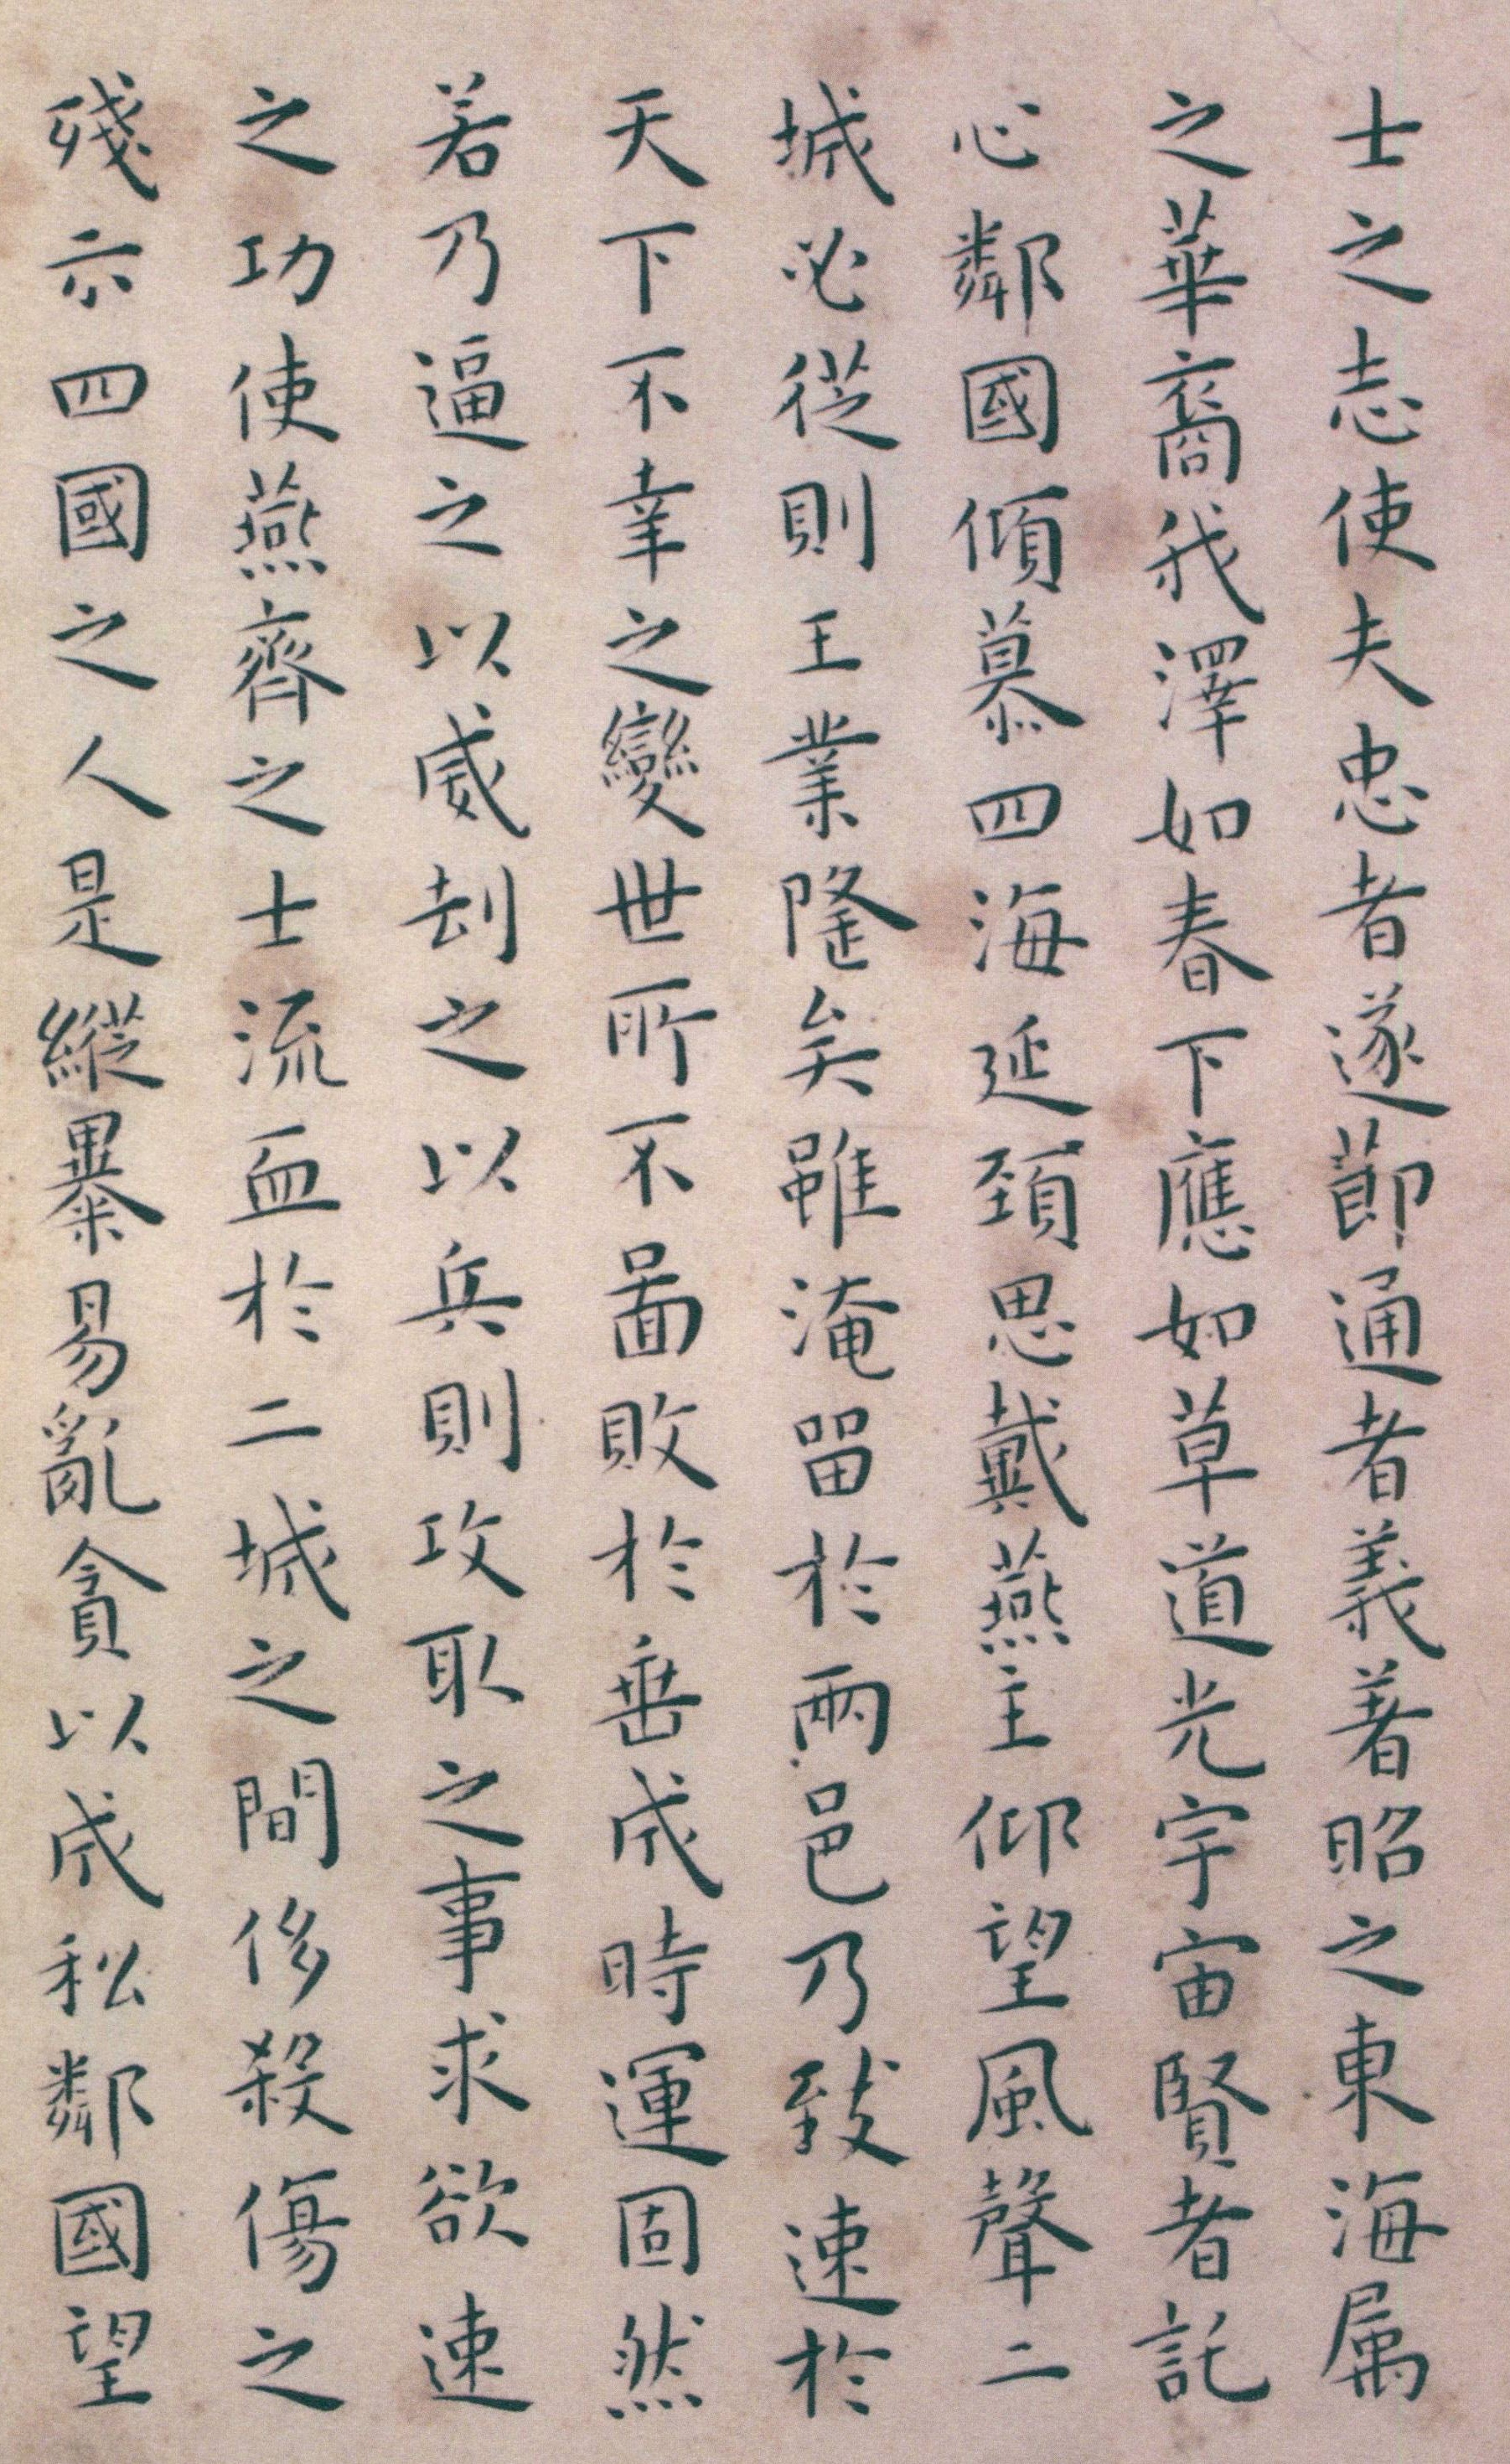 士之志使夫忠者遂莭通者義著昭之東海属
之華裔我澤如春下應如草道光宇宙賢者託
心鄰國傾慕四海延頚思戴燕主仰望風聲二
城必従則王業隆矣雖淹留於兩邑乃致速於
天下不幸之變世所不啚敗於垂成時運固然
若乃逼之以威刧之以兵則攻取之事求欲速
之功使燕齊之士流血於二城之間侈殺傷之
殘示四國之人是縱暴易亂貪以成私鄰國望